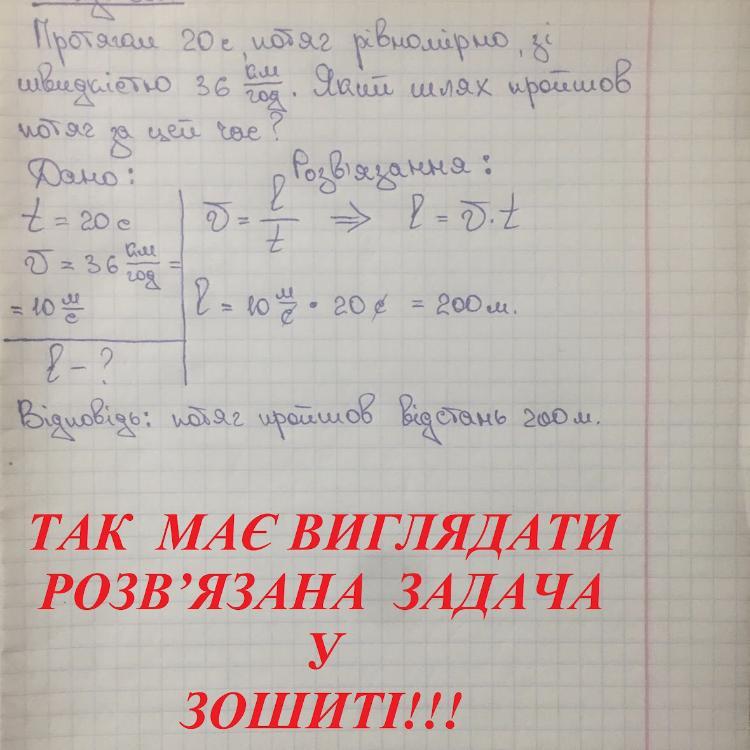 Протягом 20 с, потяг рівномірно, зі
швидкістю 36 км/год. Який шлях пройшов
потяг за цей час?
Дано:
Розв'язання:
t = 20 с
v = l/t ⇒ l = v · t
v = 36 км/год =
= 10 м/с
l = 10 м/с · 20 с = 200 м.
l – ?
Відповідь: потяг пройшов відстань 200 м.
ТАК МАЄ ВИГЛЯДАТИ
РОЗВ’ЯЗАНА ЗАДАЧА
У
ЗОШИТІ!!!